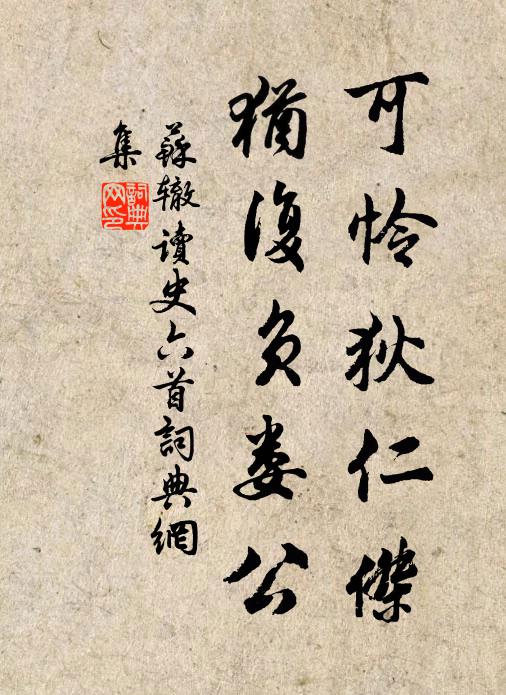 可怜狄仁傑
猶復負婁公
蘇辙讀史六首詞典網
集
詞典
网印